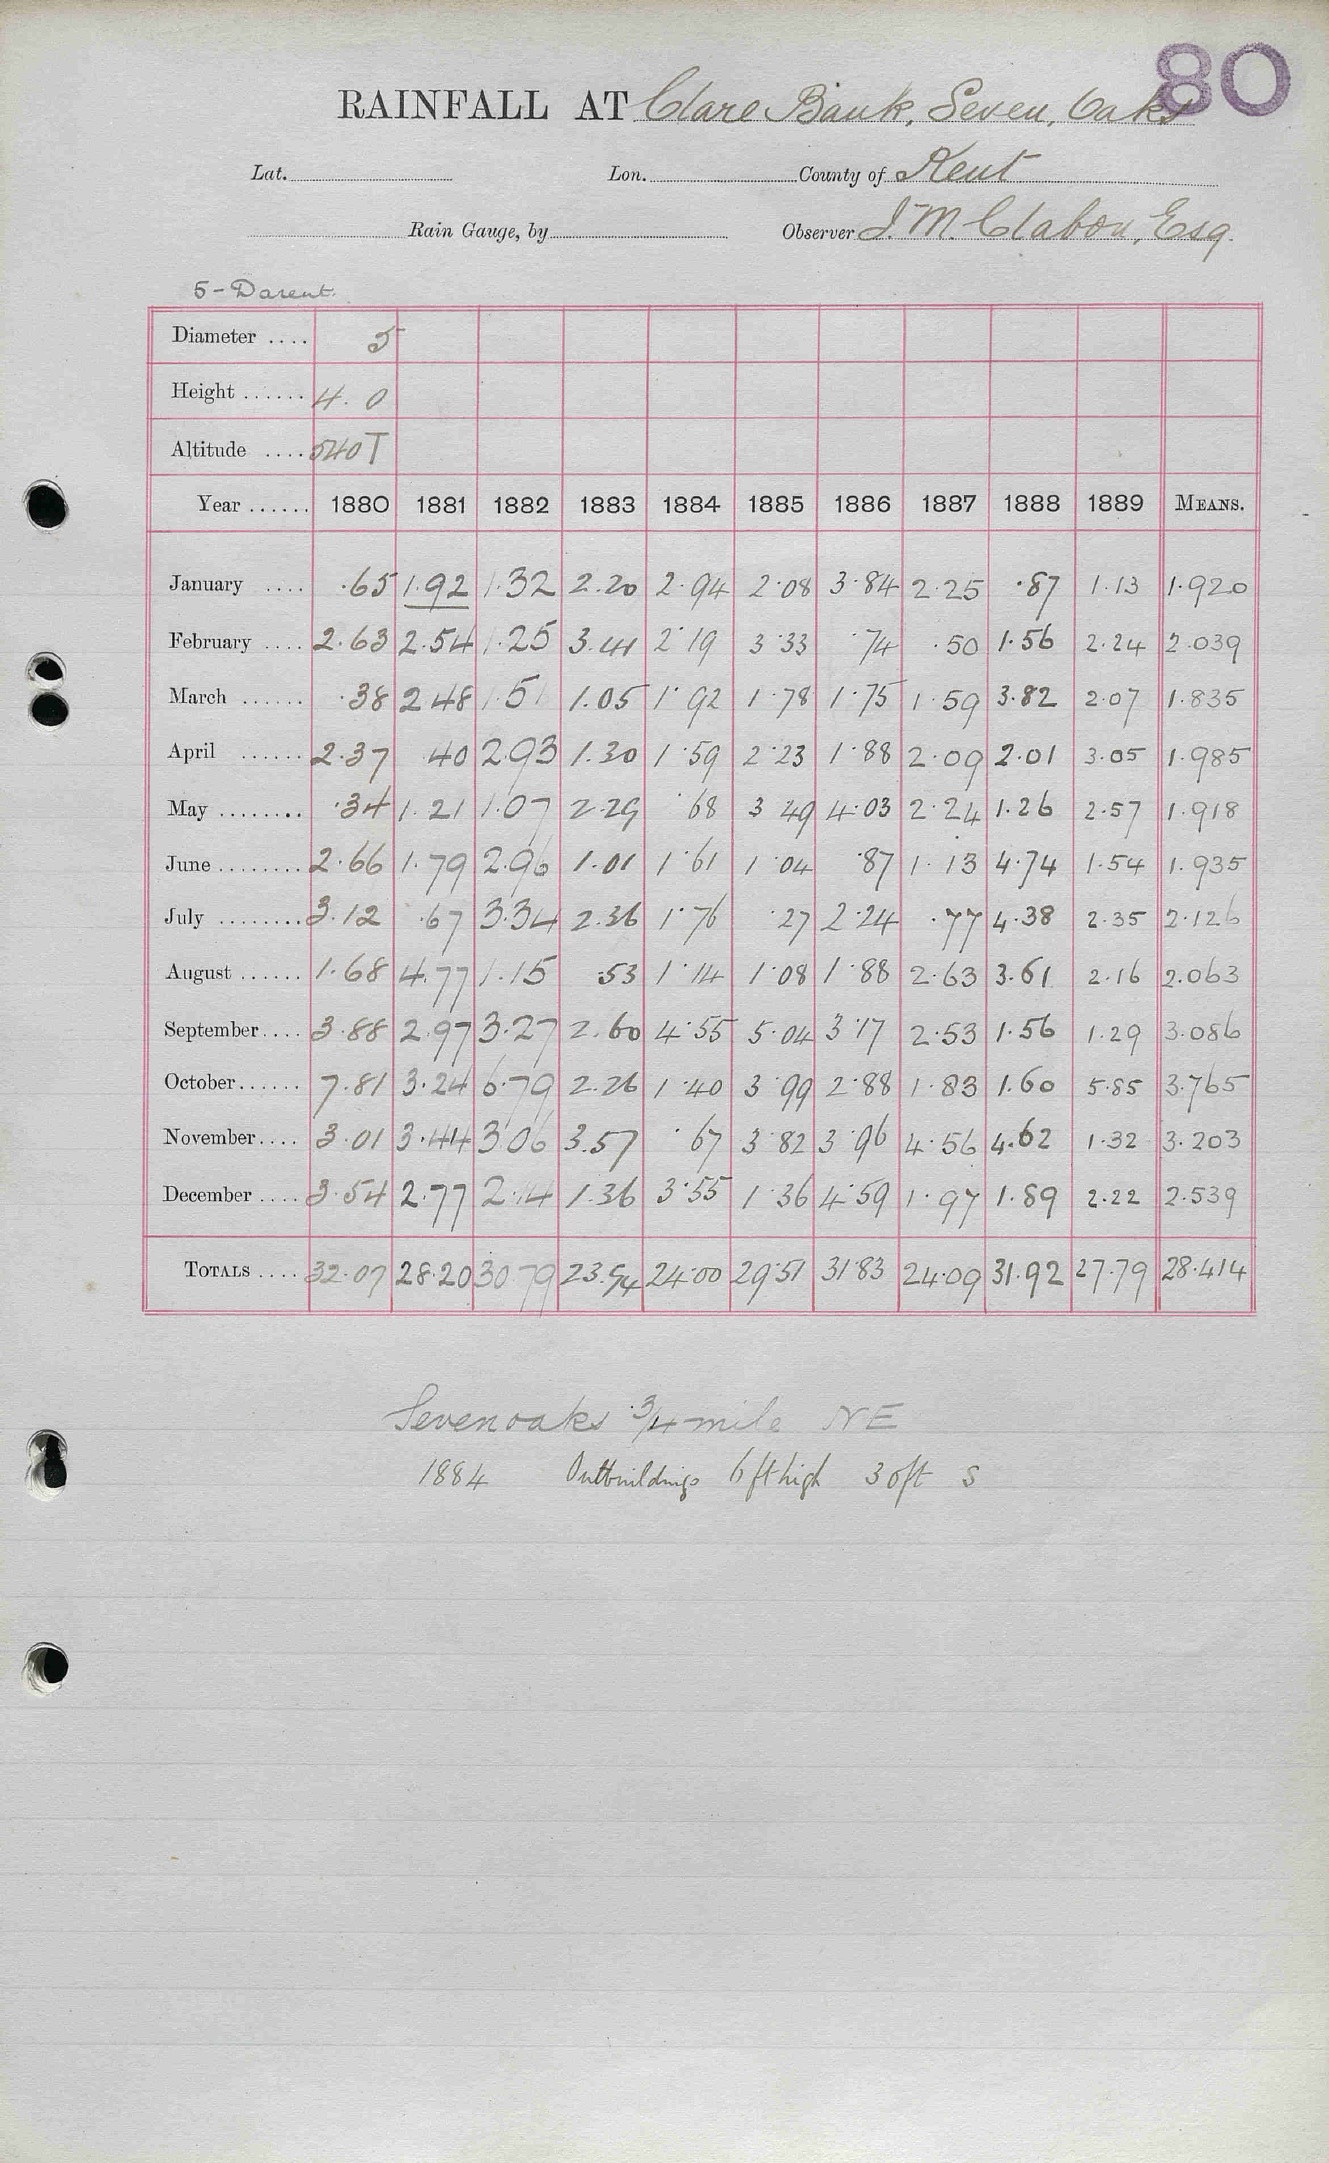 80
RAINFALL AT Clare Bank, Seven, Oaks
Lat. Lon. County of Kent
Rain Gauge, by Observer J. M. Clabon, Esq.
5 - Darent.
Diameter .... 5
Height ...... 4. 0
Altitude .... 540 T
Year ...... 1880 1881 1882 1883 1884 1885 1886 1887 1888 1889 MEANS.
January .... .65 1.92 1.32 2.20 2.94 2.08 3.84 2.25 .87 1.13 1.920
February .... 2.63 2.54 1.25 3.41 2.19 3.33 .74 .50 1.56 2.24 2.039
March ...... .38 2.48 1.51 1.05 1.92 1.78 1.75 1.59 3.82 2.07 1.835
April ...... 2.37 .40 2.93 1.30 1.59 2.23 1.88 2.09 2.01 3.05 1.985
May ........ .34 1.21 1.07 2.29 .68 3.49 4.03 2.24 1.26 2.57 1.918
June ........ 2.66 1.79 2.96 1.01 1.61 1.04 .87 1.13 4.74 1.54 1.935
July ........ 3.12 .67 3.34 2.36 1.76 .27 2.24 .77 4.38 2.35 2.126
August ...... 1.68 4.77 1.15 .53 1.14 1.08 1.88 2.63 3.61 2.16 2.063
September .... 3.88 2.97 3.27 2.60 4.55 5.04 3.17 2.53 1.56 1.29 3.086
October ...... 7.81 3.24 6.79 2.26 1.40 3.99 2.88 1.83 1.60 5.85 3.765
November .... 3.01 3.44 3.06 3.57 .67 3.82 3.96 4.56 4.62 1.32 3.203
December .... 3.54 2.77 2.14 1.36 3.55 1.36 4.59 1.97 1.89 2.22 2.539
TOTALS .... 32.07 28.20 30.79 23.94 24.00 29.51 31.83 24.09 31.92 27.79 28.414
Sevenoaks 3/4 mile NE
1884 Outbuildings 6 ft high 30ft S